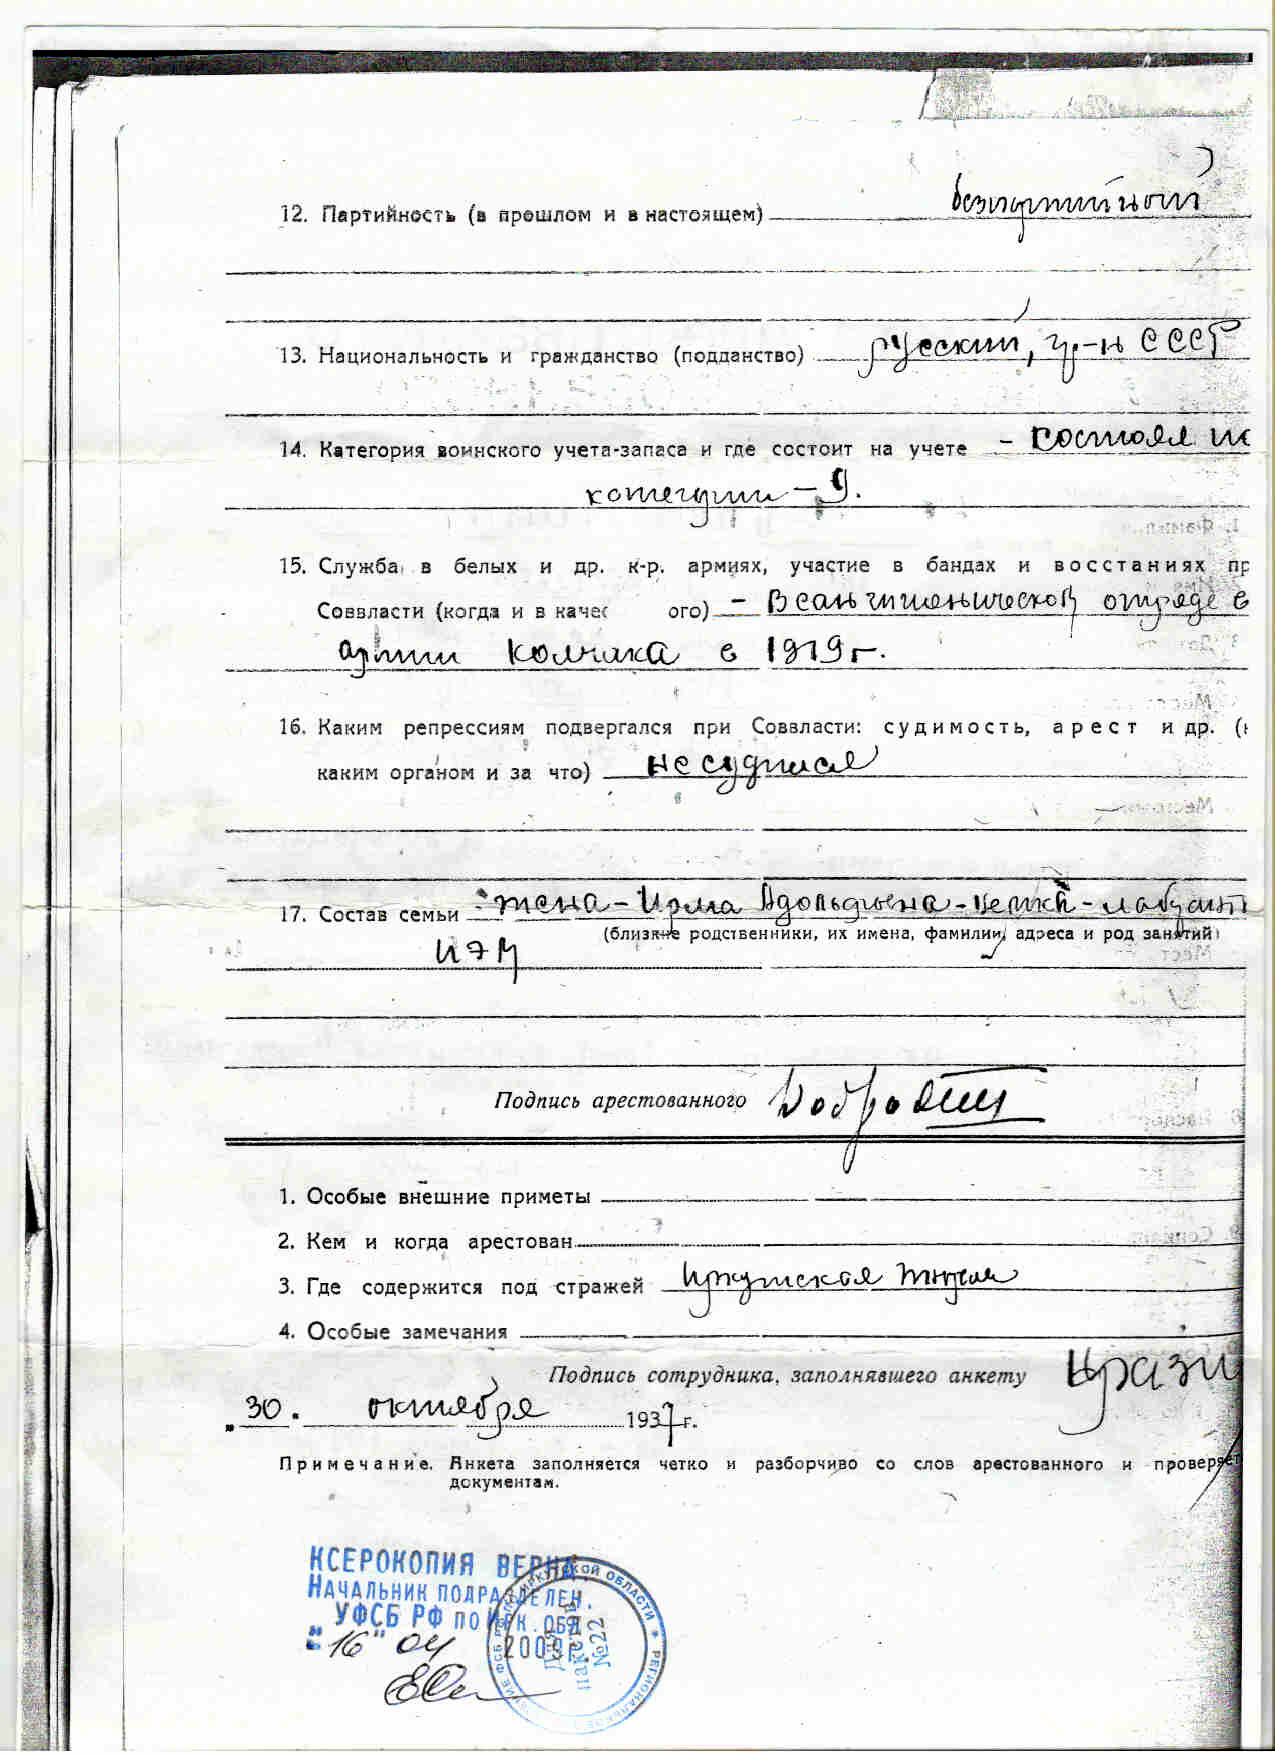 12. Партийность (в прошлом и в настоящем) безпартийный
13. Национальность и гражданство (подданство) русский, гр-н СССР
14. Категория воинского учета-запаса и где состоит на учете - состоял
категории - 9.
15. Служба в белых и др. к-р. армиях, участие в бандах и восстаниях пр
Соввласти (когда и в качес ого) - В отряде в
армии Колчака в 1919 г.
16. Каким репрессиям подвергался при Соввласти: судимость, арест и др. (к
каким органом и за что) не судился
17. Состав семьи жена - Ирма Адольфовна -
(близкие родственники, их имена, фамилии, адреса и род занятий)
ИЭМ
Подпись арестованного
1. Особые внешние приметы
2. Кем и когда арестован
3. Где содержится под стражей Иркутская тюрьма
4. Особые замечания
Подпись сотрудника, заполнявшего анкету
„30. октября 1937 г.
Примечание. Анкета заполняется четко и разборчиво со слов арестованного и проверяет
документам.
КСЕРОКОПИЯ ВЕРНА.
НАЧАЛЬНИК ПОДРАЗДЕЛЕН.
УФСБ РФ ПО ИРК. ОБЛ
"16" 04 2009г.
Для пакетов №22